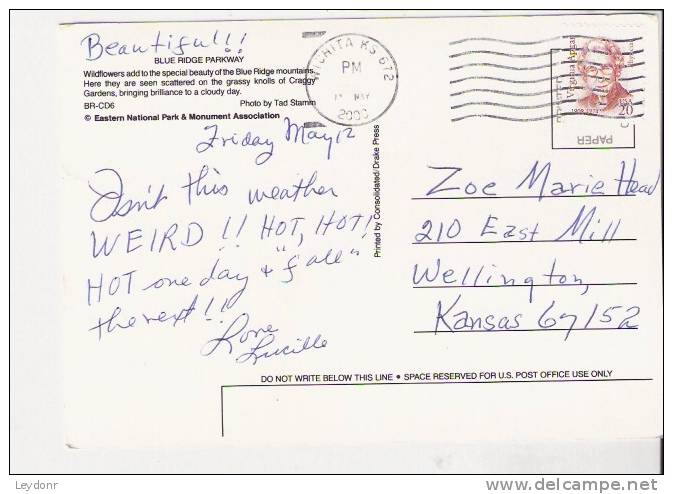 Beautiful!!
BLUE RIDGE PARKWAY
Wildflowers add to the special beauty of the Blue Ridge mountains.
Here they are seen scattered on the grassy knolls of Craggy
Gardens, bringing brilliance to a cloudy day.
BR-CD6 Photo by Tad Stamm
© Eastern National Park & Monument Association
WICHITA KS 672
PM
MAY
2000
Virginia Apgar
Physician
1909-1974
USA
20
PAPER
Friday May 12
Isn't this weather
WEIRD!! HOT, HOT!
HOT one day & "fall"
the next!!
Love
Lucille
Printed by Consolidated/Drake Press
Zoe Marie Head
210 East Mill
Wellington,
Kansas 67152
DO NOT WRITE BELOW THIS LINE • SPACE RESERVED FOR U.S. POST OFFICE USE ONLY
Leydonr
www.delcampe.net